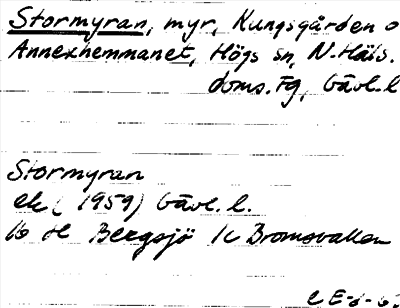 Stormyran, myr, Kungsgården o
Annexhemmanet, Högs sn, N. Häls.
doms. Fg, Gävl. l
Stormyran
ek (1959) Gävl. l.
16 H Bergsjö 1c Bromsvallen